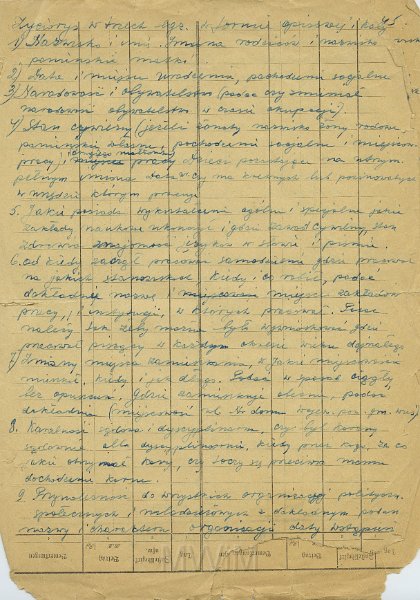 Życiorys w trzech egz. w formie opisowej i
1) Nazwisko i imię. Imiona rodziców i nazwisko
panieńskie matki
2) Data i miejsce urodzenia, pochodzenie socjalne
3) Narodowość i obywatelstwo (podać czy zmieniał
narodowość obywatelstwo w czasie okupacji).
4) Stan cywilny (jeżeli żonaty nazwisko żony rodowe
panieńskie własne, pochodzenie socjalne i miejsce
pracy), miejsce pracy dzieci pozostające na utrzym.
pełnym imiona data czy ma krewnych lub powinowatych
w urzędzie którym pracuje
5. Jakie posiada wykształcenie ogólne i specjalne jakie
zakłady naukowe ukończył i gdzie zawód cywilny, stan
zdrowia znajomość języków w słowie i piśmie.
6. od kiedy zaczął pracować samodzielnie gdzie pracował
na jakich stanowiskach kiedy i co robił, podać
dokładnie nazwę i miejsce zakładów
pracy, i instytucji, w których pracował. Pisać
należy tak żeby można było wywnioskować gdzie
pracował piszący w każdym okresie wieku dojrzałego
7) Zmiany miejsca zamieszkania, w jakiej miejscowości
mieszkał, kiedy i jak długo. Podać w sposób ciągły
bez opuszczeń, gdzie zamieszkuje obecnie, podać
dokładnie (miejscowość ul. Nr domu woj. pow. gm. wieś)
8. Karalność sądowa i dyscyplinarna, czy był karany
sądownie albo dyscyplinarnie, kiedy przez kogo, za co
jakie otrzymał kary, czy toczy się przeciwko niemu
dochodzenie karne.
9. Przynależność do wszystkich organizacji politycz.
społecznych i młodzieżowych z dokładnym podan.
nazwy i charakteru organizacji daty wstąpienia